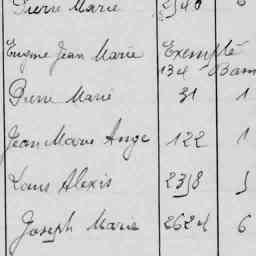 Pierre Marie 2540 6
Eugène Jean Marie Exempté
134 Bam
Pierre Marie 31 1
Jean Marie Ange 122 1
Louis Alexis 2358 5
Joseph Marie 2624 6